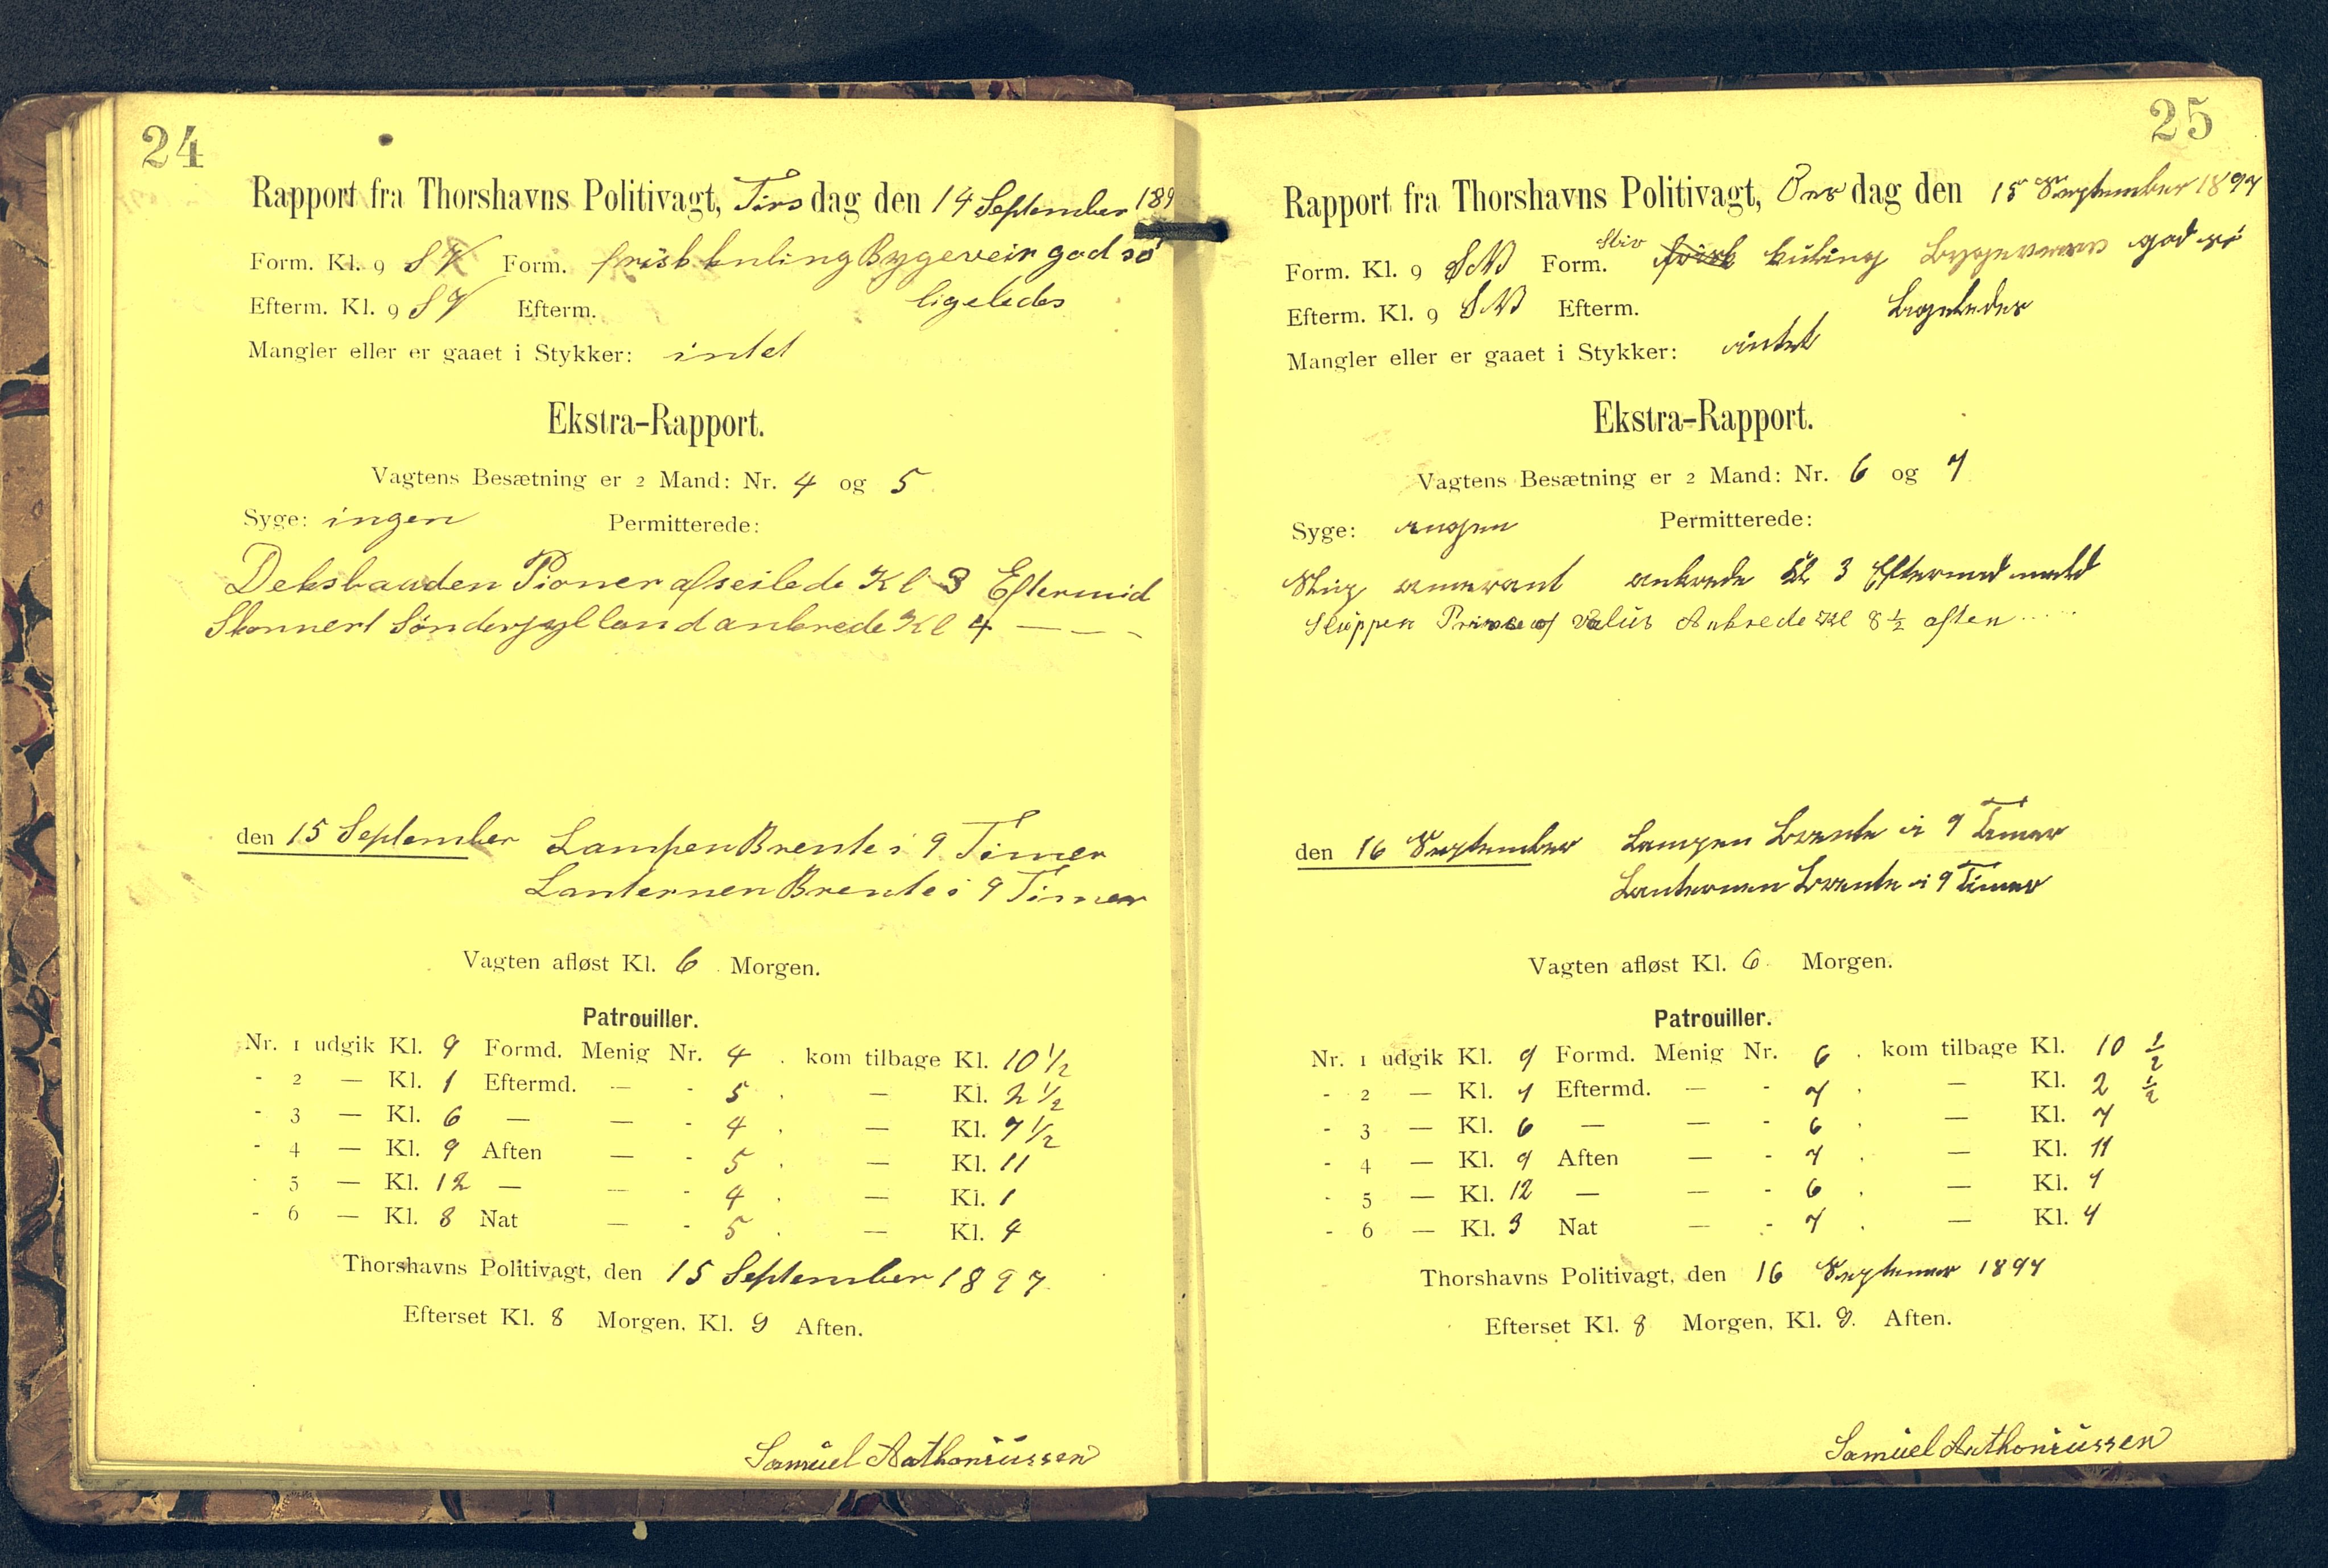 24
Rapport fra Thorshavns Politivagt, Tirsdag den 14 September 189
Form. Kl. 9 SV Form. frisk kuling Bygeveir god sö
Efterm. Kl. 9 SV Efterm. ligeledes
Mangler eller er gaaet i Stykker: intet
Ekstra-Rapport.
Vagtens Besætning er 2 Mand: Nr. 4 og 5
Syge: ingen Permitterede:
Deksbauden Pioner afseilede Kl 3 Eftermid
Skonnert Sönderjylland ankrede Kl 4 — — -
den 15 September Lampen Brente i 9 Timer
Lanternen Brente i 9 Timer
Vagten afløst Kl. 6 Morgen.
Patrouiller.
Nr. 1 udgik Kl. 9 Formd. Menig Nr. 4 . kom tilbage Kl. 10 1/2
- 2 — Kl. 1 Eftermd. — - 5 . — Kl. 2 1/2
- 3 — Kl. 6 — — - 4 . — Kl. 7 1/2
- 4 — Kl. 9 Aften — - 5 . — Kl. 11
- 5 — Kl. 12 — — - 4 . — Kl. 1
- 6 — Kl. 3 Nat — - 5 . — Kl. 4
Thorshavns Politivagt, den 15 September 1897
Efterset Kl. 8 Morgen, Kl. 9 Aften.
Samuel Anthoniussen
25
Rapport fra Thorshavns Politivagt, Onsdag den 15 September 1897
Form. Kl. 9 SW Form. Stiv frisk kuling god sö
Efterm. Kl. 9 SW Efterm. Ligeledes
Mangler eller er gaaet i Stykker: intet
Ekstra-Rapport.
Vagtens Besætning er 2 Mand: Nr. 6 og 7
Syge: ingen Permitterede:
ankrede Kl 3 Eftermed
Sluppen Prinse of Valus Ankrede Kl 8 1/2 aften
den 16 September Lampen Brente i 9 Timer
Lanternen Brente i 9 Timer
Vagten afløst Kl. 6 Morgen.
Patrouiller.
Nr. 1 udgik Kl. 9 Formd. Menig Nr. 6 . kom tilbage Kl. 10 1/2
- 2 — Kl. 1 Eftermd. — - 7 . — Kl. 2 1/2
- 3 — Kl. 6 — — - 6 . — Kl. 7
- 4 — Kl. 9 Aften — - 7 . — Kl. 11
- 5 — Kl. 12 — — - 6 . — Kl. 1
- 6 — Kl. 3 Nat — - 7 . — Kl. 4
Thorshavns Politivagt, den 16 September 1897
Efterset Kl. 8 Morgen, Kl. 9. Aften.
Samuel Anthoniussen